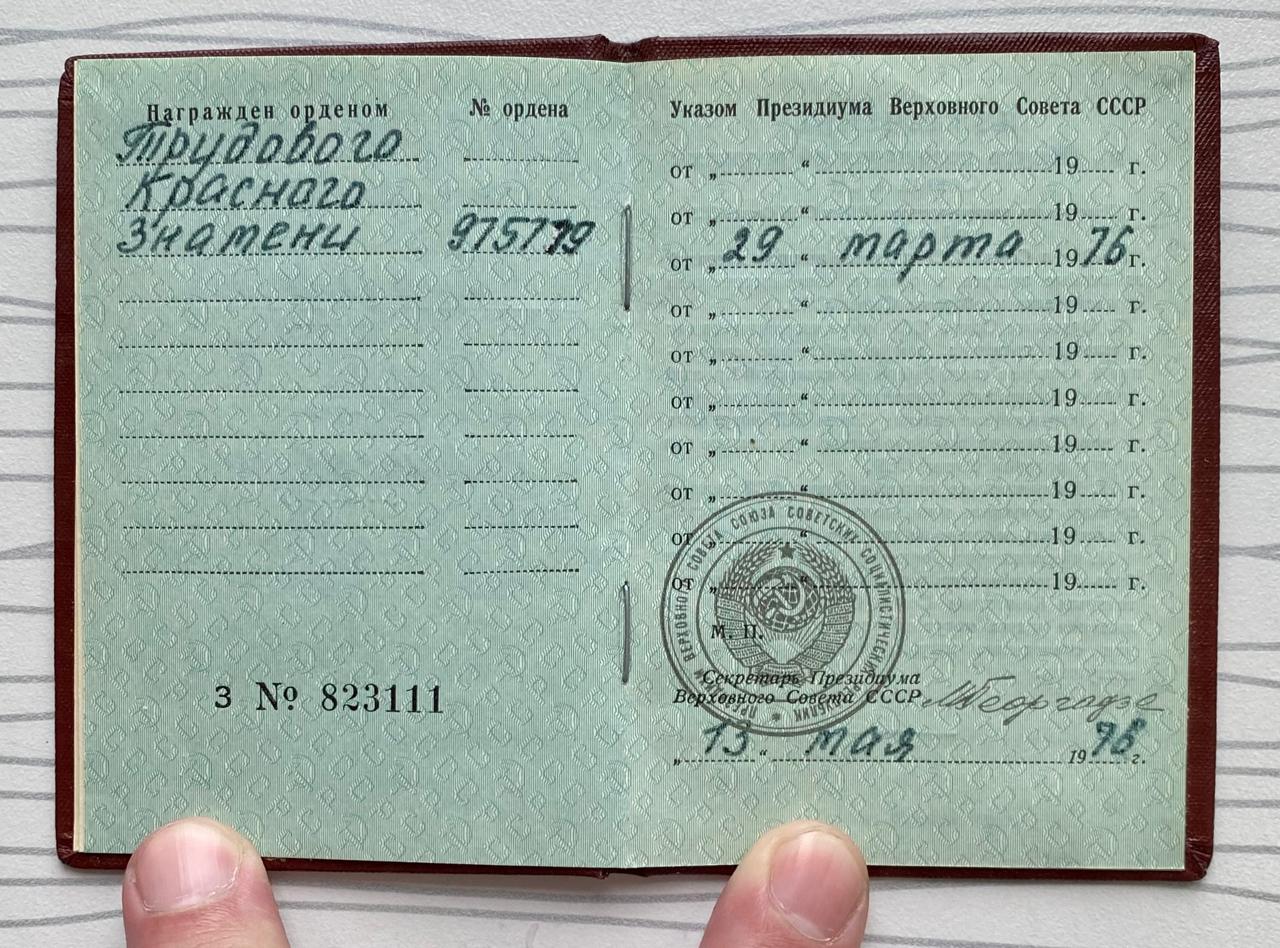 Награжден орденом № ордена
Трудового
Красного
Знамени 975779
3 № 823111
Указом Президиума Верховного Совета СССР
от „ “ 19 г.
от „ “ 19 г.
от „ 29 “ марта 1976 г.
от „ “ 19 г.
от „ “ 19 г.
от „ “ 19 г.
от „ “ 19 г.
от „ “ 19 г.
от „ “ 19 г.
от „ “ 19 г.
М. П.
ПРЕЗИДИУМ ВЕРХОВНОГО СОВЕТА СОЮЗА СОВЕТСКИХ СОЦИАЛИСТИЧЕСКИХ РЕСПУБЛИК
Секретарь Президиума
Верховного Совета СССР МГеоргадзе
„ 13 “ мая 1976 г.